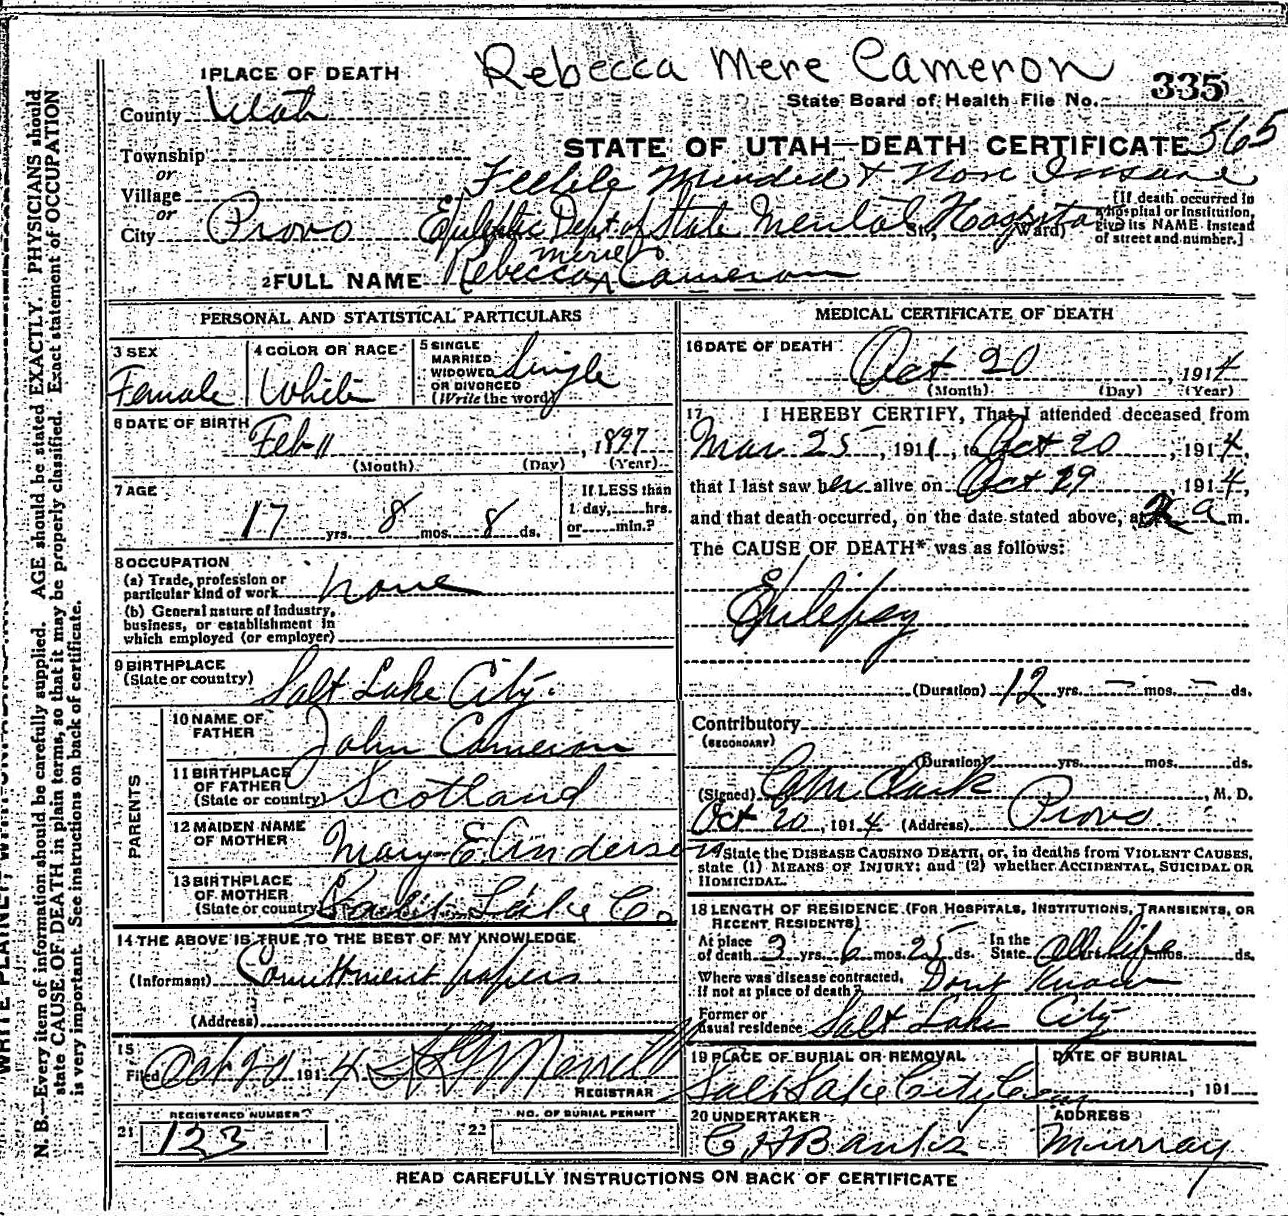 Rebecca Mere Cameron
1 PLACE OF DEATH
335
State Board of Health File No.
County Utah
STATE OF UTAH—DEATH CERTIFICATE 565
Township
or
Feeble Minded & Non Insane
Village
or
City Provo Epileptic Dept of State Mental Hospital St., Ward)
[If death occurred in a hospital or institution, give its NAME instead of street and number.]
Mere
2 FULL NAME Rebecca Cameron
PERSONAL AND STATISTICAL PARTICULARS
3 SEX
Female
4 COLOR OR RACE
White
5 SINGLE
MARRIED
WIDOWED
OR DIVORCED
(Write the word)
Single
6 DATE OF BIRTH
Feb 11, 1897
(Month) (Day) (Year)
7 AGE
17 yrs. 8 mos. 8 ds.
If LESS than
1 day, hrs.
or min.?
8 OCCUPATION
(a) Trade, profession or
particular kind of work none
(b) General nature of industry,
business, or establishment in
which employed (or employer)
9 BIRTHPLACE
(State or country) Salt Lake City.
PARENTS
10 NAME OF
FATHER John Cameron
11 BIRTHPLACE
OF FATHER
(State or country) Scotland
12 MAIDEN NAME
OF MOTHER Mary E Anderson
13 BIRTHPLACE
OF MOTHER
(State or country) Salt Lake Co
14 THE ABOVE IS TRUE TO THE BEST OF MY KNOWLEDGE
(Informant) Comittment papers
(Address)
15
Filed Oct 20 1914 Merrill
REGISTRAR
REGISTERED NUMBER
21 123
NO. OF BURIAL PERMIT
22
MEDICAL CERTIFICATE OF DEATH
16 DATE OF DEATH
Oct 20, 1914
(Month) (Day) (Year)
17 I HEREBY CERTIFY, That I attended deceased from
Mar 25, 1911, to Oct 20, 1914,
that I last saw her alive on Oct 29 1914,
and that death occurred, on the date stated above, at a m.
The CAUSE OF DEATH* was as follows:
Epilepsy
(Duration) 12 yrs. — mos. — ds.
Contributory
(SECONDARY)
(Duration) yrs. mos. ds.
(Signed) Clark, M. D.
Oct 20, 1914 (Address) Provo
*State the DISEASE CAUSING DEATH, or, in deaths from VIOLENT CAUSES,
state (1) MEANS OF INJURY; and (2) whether ACCIDENTAL, SUICIDAL OR
HOMICIDAL.
18 LENGTH OF RESIDENCE (FOR HOSPITALS, INSTITUTIONS, TRANSIENTS, OR
RECENT RESIDENTS)
At place
of death 3 yrs. 6 mos. 25 ds. In the
State all life mos. ds.
Where was disease contracted,
if not at place of death? Dont Know
Former or
usual residence Salt Lake City
19 PLACE OF BURIAL OR REMOVAL
Salt Lake City Cem
DATE OF BURIAL
, 191
20 UNDERTAKER
C H Banks
ADDRESS
Murray
READ CAREFULLY INSTRUCTIONS ON BACK OF CERTIFICATE
N. B.—Every item of information should be carefully supplied. AGE should be stated EXACTLY. PHYSICIANS should
state CAUSE OF DEATH in plain terms, so that it may be properly classified. Exact statement of OCCUPATION
is very important. See instructions on back of certificate.